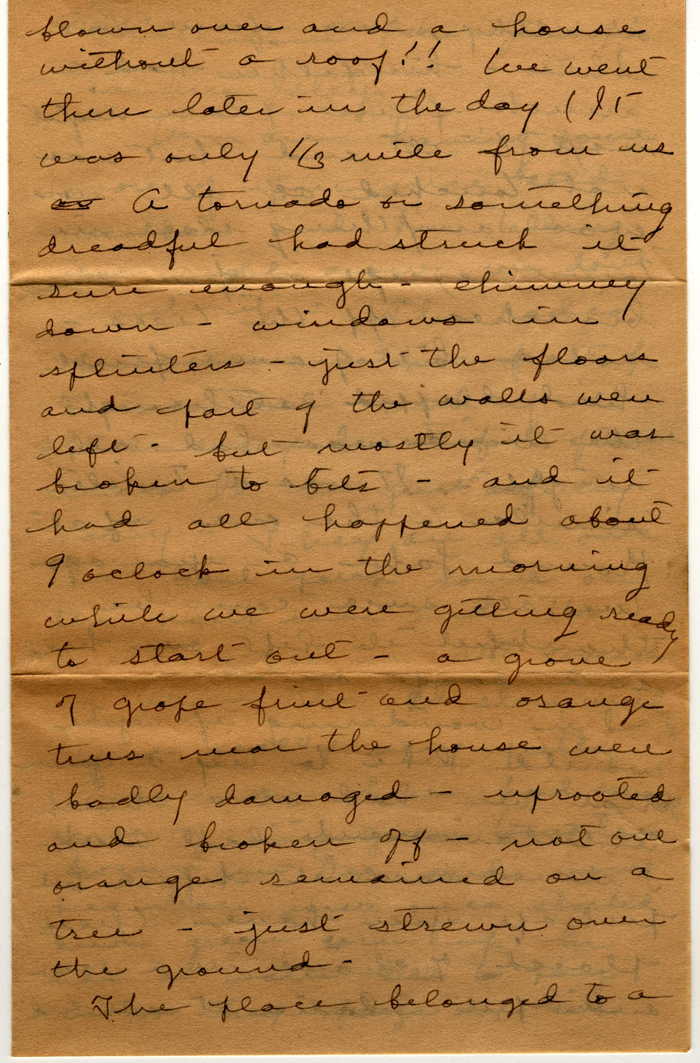 blown over and a house
without a roof!! We went
there later in the day (It
was only 1/3 mile from us
A tornado or something
dreadful had struck it
sure enough - chimney
down - windows in
splinters - just the floors
and part of the walls were
left - but mostly it was
broken to bits - and it
had all happened about
9 oclock in the morning
while we were getting ready
to start out - a grove
of grape fruit and orange
trees near the house were
badly damaged - uprooted
and broken off - not one
orange remained on a
tree - just strewn over
the ground -
The place belonged to a